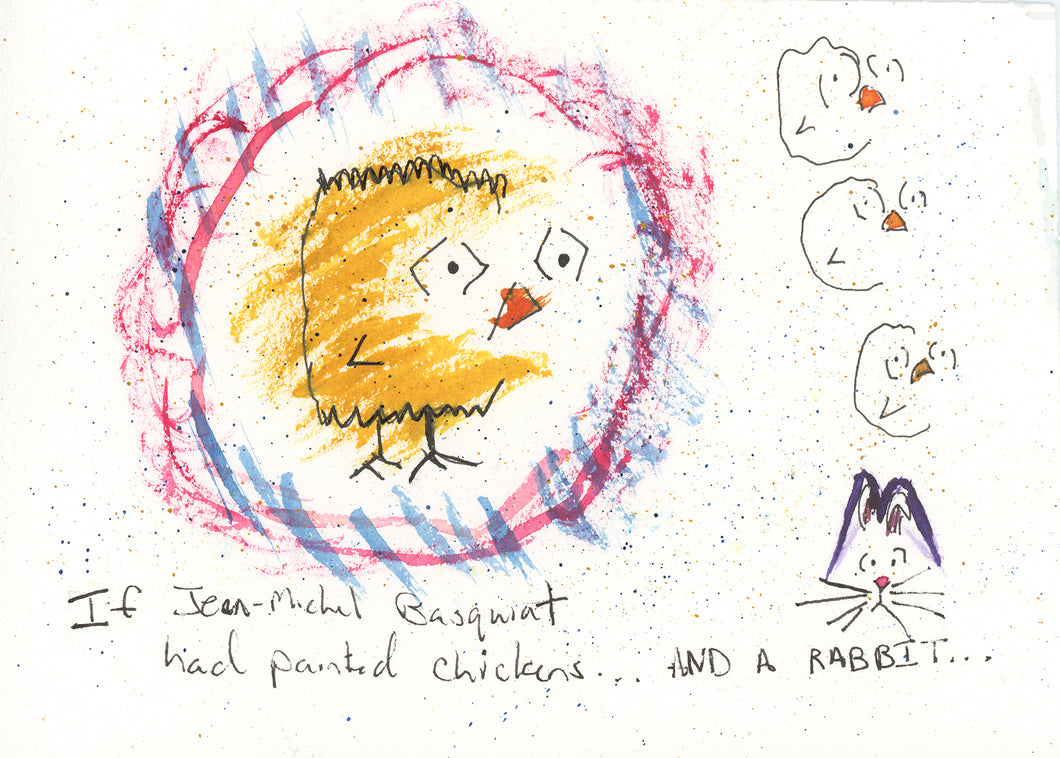 If Jean-Michel Basquiat
had painted chickens... AND A RABBIT...